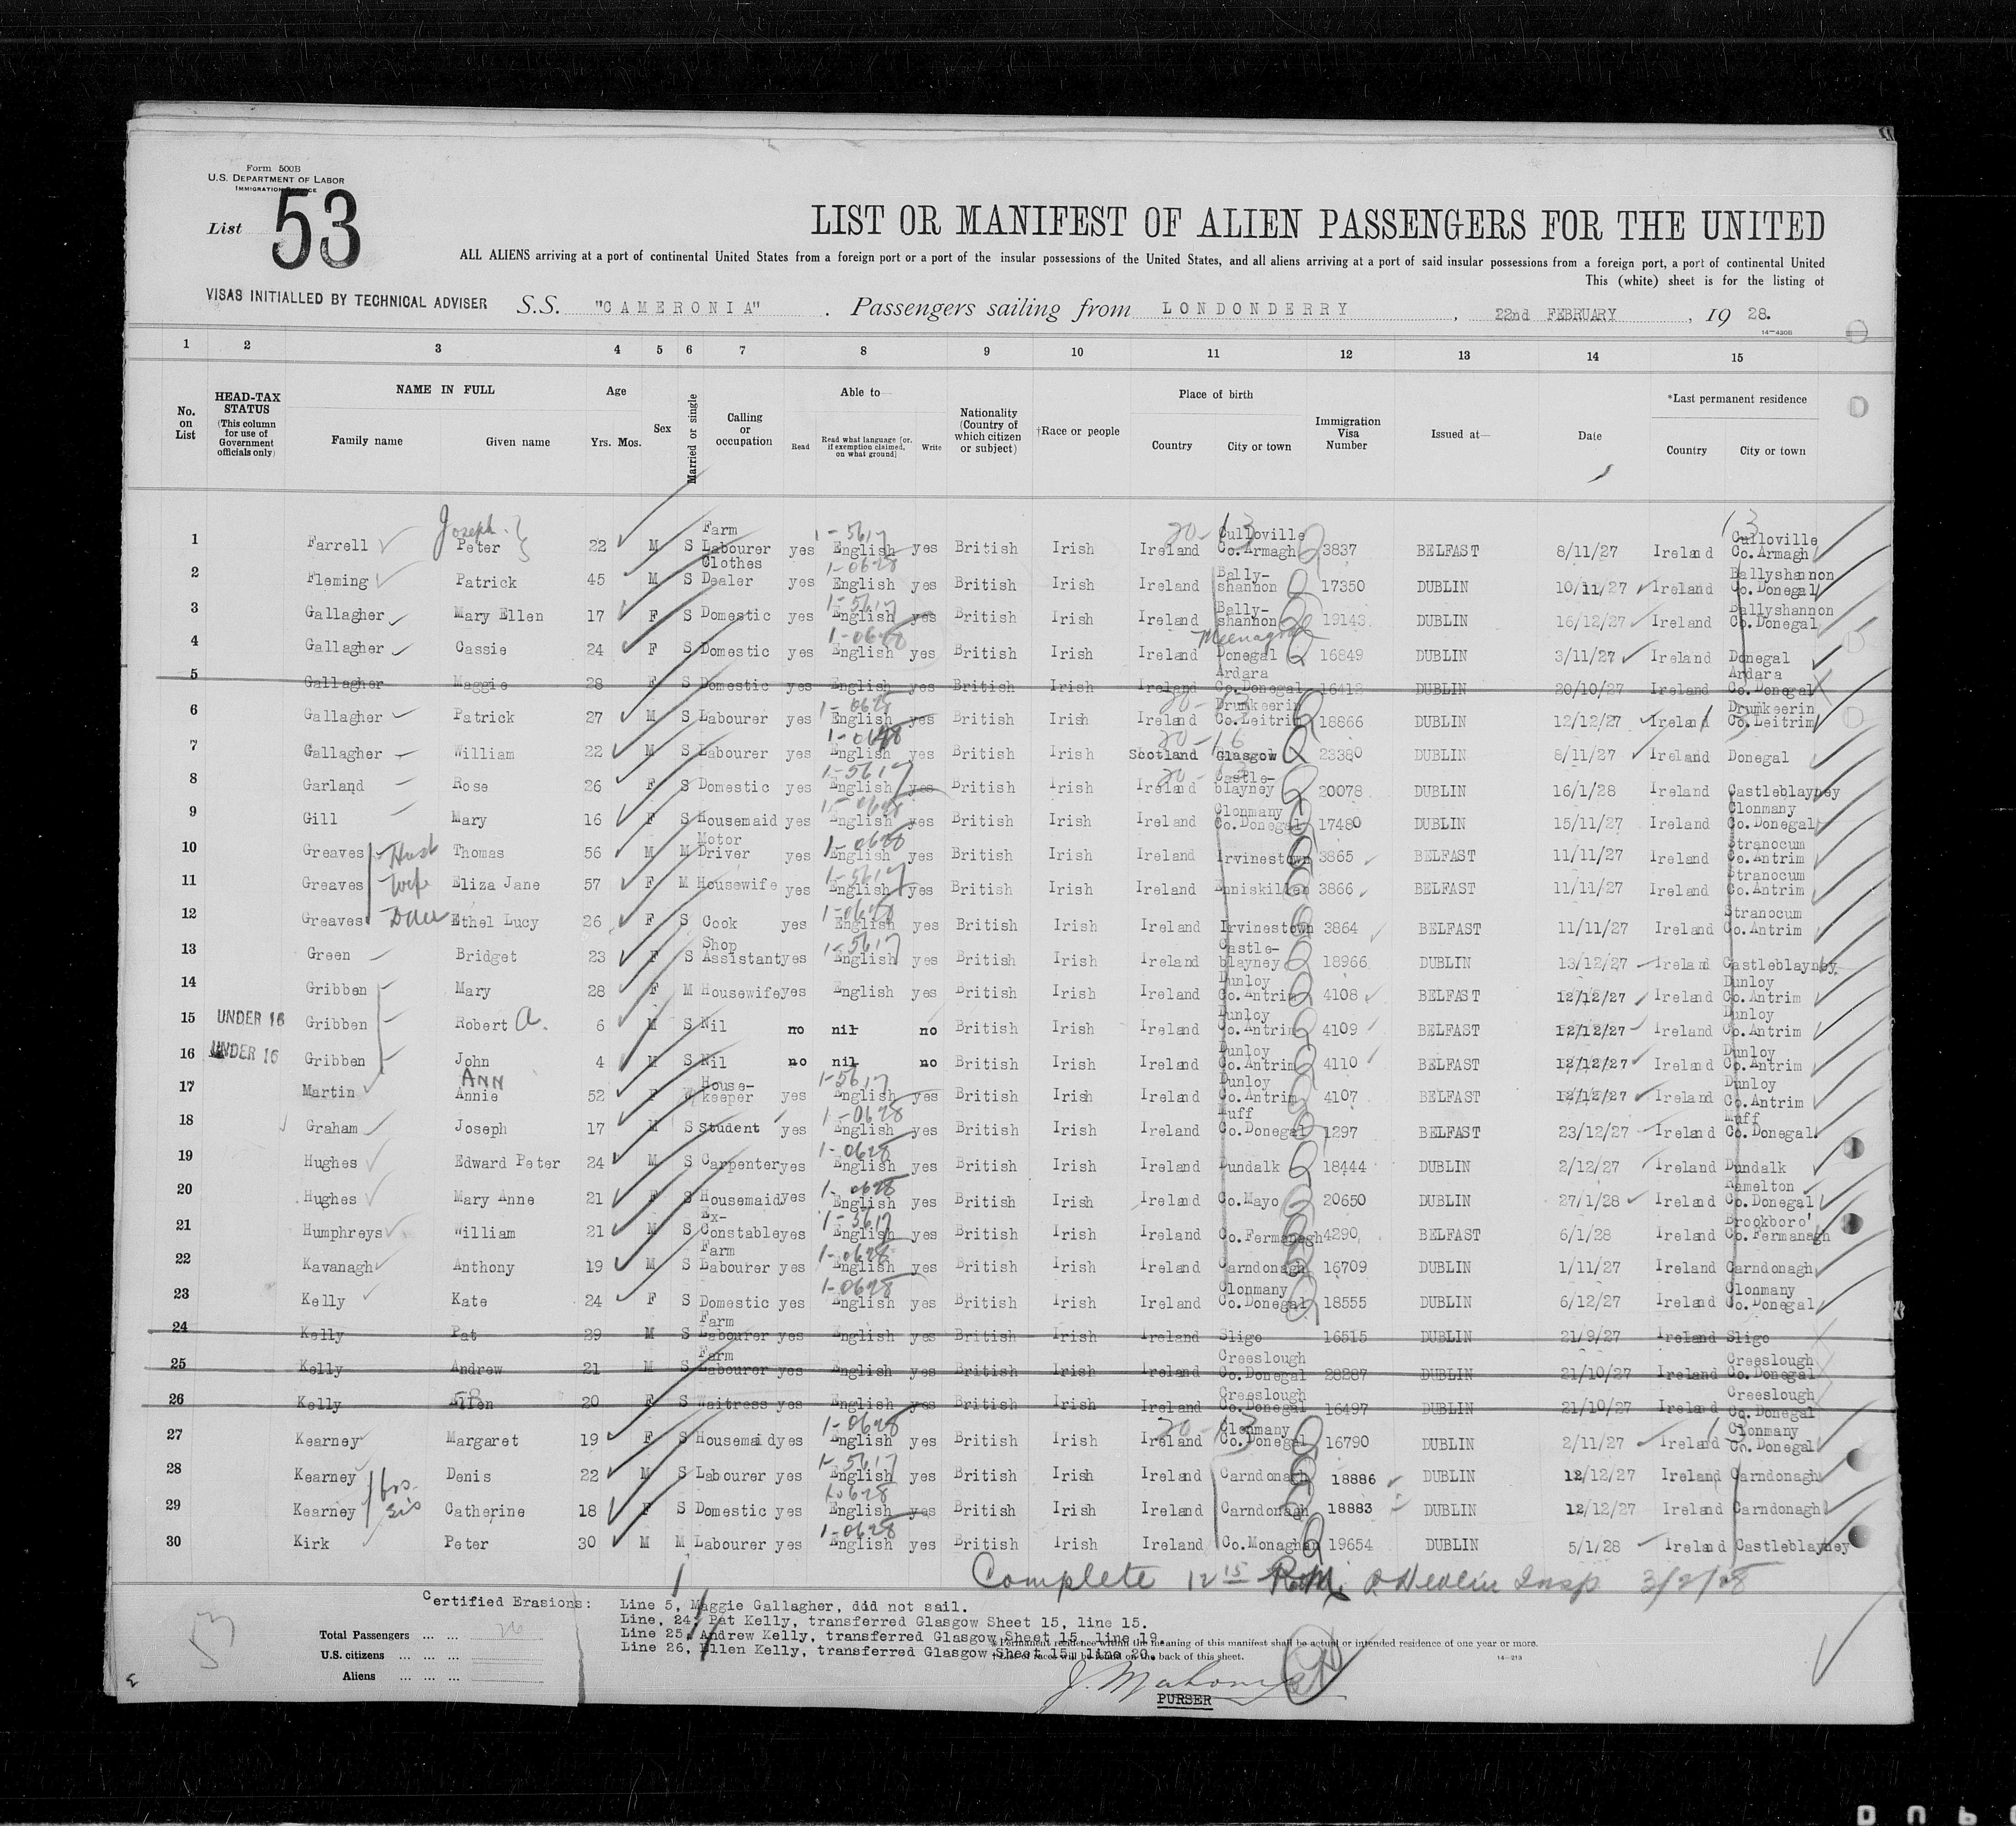 Form 500B
U.S. DEPARTMENT OF LABOR
IMMIGRATION SERVICE
List 53
LIST OR MANIFEST OF ALIEN PASSENGERS FOR THE UNITED
ALL ALIENS arriving at a port of continental United States from a foreign port or a port of the insular possessions of the United States, and all aliens arriving at a port of said insular possessions from a foreign port, a port of continental United
This (white) sheet is for the listing of
VISAS INITIALLED BY TECHNICAL ADVISER S.S. "CAMERONIA" . Passengers sailing from LONDONDERRY , 22nd FEBRUARY , 19 28.
14—430B
1 2 3 4 5 6 7 8 9 10 11 12 13 14 15
No. on List HEAD-TAX STATUS (This column for use of Government officials only) NAME IN FULL Family name Given name Age Yrs. Mos. Sex Married or single Calling or occupation Able to— Read Read what language [or, if exemption claimed, on what ground] Write Nationality (Country of which citizen or subject) †Race or people Place of birth Country City or town Immigration Visa Number Issued at— Date *Last permanent residence Country City or town
1 Farrell Joseph Peter 22 M S Farm Labourer yes 1-5617 English yes British Irish 20-13 Ireland Culloville Co.Armagh 3837 BELFAST 8/11/27 Ireland 13 Culloville Co.Armagh
2 Fleming Patrick 45 M S Clothes Dealer yes 1-0628 English yes British Irish Ireland Bally-shannon 17350 DUBLIN 10/11/27 Ireland Ballyshannon Co.Donegal
3 Gallagher Mary Ellen 17 F S Domestic yes 1-5617 English yes British Irish Ireland Bally-shannon 19143 DUBLIN 16/12/27 Ireland Ballyshannon Co.Donegal
4 Gallagher Cassie 24 F S Domestic yes 1-0628 English yes British Irish Ireland Donegal 16849 DUBLIN 3/11/27 Ireland Donegal
5 Gallagher Maggie 28 F S Domestic yes English yes British Irish Ireland Ardara Co.Donegal 16412 DUBLIN 20/10/27 Ireland Ardara Co.Donegal
6 Gallagher Patrick 27 M S Labourer yes 1-0628 English yes British Irish 20-13 Ireland Drumkeerin Co.Leitrim 18866 DUBLIN 12/12/27 Ireland 13 Drumkeerin Co.Leitrim
7 Gallagher William 22 M S Labourer yes 1-0628 English yes British Irish 20-16 Scotland Glasgow 23380 DUBLIN 8/11/27 Ireland Donegal
8 Garland Rose 26 F S Domestic yes 1-5617 English yes British Irish 20-13 Ireland Castle-blayney 20078 DUBLIN 16/1/28 Ireland Castleblayney
9 Gill Mary 16 F S Housemaid yes 1-0628 English yes British Irish Ireland Clonmany Co.Donegal 17480 DUBLIN 15/11/27 Ireland Clonmany Co.Donegal
10 Greaves Husb Thomas 56 M M Motor Driver yes 1-0628 English yes British Irish Ireland Irvinestown 3865 BELFAST 11/11/27 Ireland Stranocum Co.Antrim
11 Greaves Wife Eliza Jane 57 F M Housewife yes 1-5617 English yes British Irish Ireland Enniskillen 3866 BELFAST 11/11/27 Ireland Stranocum Co.Antrim
12 Greaves Ethel Lucy 26 F S Cook yes 1-0628 English yes British Irish Ireland Irvinestown 3864 BELFAST 11/11/27 Ireland Stranocum Co.Antrim
13 Green Bridget 23 F S Shop Assistant yes 1-5617 English yes British Irish Ireland Castle-blayney 18966 DUBLIN 13/12/27 Ireland Castleblayney
14 Gribben Mary 28 F M Housewife yes English yes British Irish Ireland Dunloy Co.Antrim 4108 BELFAST 12/12/27 Ireland Dunloy Co.Antrim
15 UNDER 16 Gribben Robert A. 6 M S Nil no nil no British Irish Ireland Dunloy Co.Antrim 4109 BELFAST 12/12/27 Ireland Dunloy Co.Antrim
16 UNDER 16 Gribben John 4 M S Nil no nil no British Irish Ireland Dunloy Co.Antrim 4110 BELFAST 12/12/27 Ireland Dunloy Co.Antrim
17 Martin ANN Annie 52 F W House-keeper yes 1-5617 English yes British Irish Ireland Dunloy Co.Antrim 4107 BELFAST 12/12/27 Ireland Dunloy Co.Antrim
18 Graham Joseph 17 M S Student yes 1-0628 English yes British Irish Ireland Muff Co.Donegal 1297 BELFAST 23/12/27 Ireland Muff Co.Donegal
19 Hughes Edward Peter 24 M S Carpenter yes 1-0628 English yes British Irish Ireland Dundalk 18444 DUBLIN 2/12/27 Ireland Dundalk
20 Hughes Mary Anne 21 F S Housemaid yes 1-0628 English yes British Irish Ireland Co.Mayo 20650 DUBLIN 27/1/28 Ireland Ramelton Co.Donegal
21 Humphreys William 21 M S Ex-Constable yes 1-5617 English yes British Irish Ireland Co.Fermanagh 4290 BELFAST 6/1/28 Ireland Brookboro' Co.Fermanagh
22 Kavanagh Anthony 19 M S Farm Labourer yes 1-0628 English yes British Irish Ireland Carndonagh 16709 DUBLIN 1/11/27 Ireland Carndonagh
23 Kelly Kate 24 F S Domestic yes 1-0628 English yes British Irish Ireland Clonmany Co.Donegal 18555 DUBLIN 6/12/27 Ireland Clonmany Co.Donegal
24 Kelly Pat 29 M S Farm Labourer yes English yes British Irish Ireland Sligo 16515 DUBLIN 21/9/27 Ireland Sligo
25 Kelly Andrew 21 M S Farm Labourer yes English yes British Irish Ireland Creeslough Co.Donegal 28287 DUBLIN 21/10/27 Ireland Creeslough Co.Donegal
26 Kelly Ellen 20 F S Waitress yes English yes British Irish Ireland Creeslough Co.Donegal 16497 DUBLIN 21/10/27 Ireland Creeslough Co.Donegal
27 Kearney Margaret 19 F S Housemaid yes 1-0628 English yes British Irish 20-13 Ireland Clonmany Co.Donegal 16790 DUBLIN 2/11/27 Ireland 13 Clonmany Co.Donegal
28 Kearney bro. Denis 22 M S Labourer yes 1-5617 English yes British Irish Ireland Carndonagh 18886 DUBLIN 12/12/27 Ireland Carndonagh
29 Kearney sis Catherine 18 F S Domestic yes 1-0628 English yes British Irish Ireland Carndonagh 18883 DUBLIN 12/12/27 Ireland Carndonagh
30 Kirk Peter 30 M M Labourer yes 1-0628 English yes British Irish Ireland Co.Monaghan 19654 DUBLIN 5/1/28 Ireland Castleblayney
Complete 12 15 P.M. Insp 3/2/28
Certified Erasions: Line 5, Maggie Gallagher, did not sail.
Line, 24, Pat Kelly, transferred Glasgow Sheet 15, line 15.
Line 25, Andrew Kelly, transferred Glasgow Sheet 15, line 19.
Line 26, Ellen Kelly, transferred Glasgow Sheet 15, line 20.
53
Total Passengers ... ... 26
U.S. citizens ... ... ...
Aliens ... ... ...
* Permanent residence within the meaning of this manifest shall be actual or intended residence of one year or more.
† List of races will be found on the back of this sheet.
14—213
PURSER